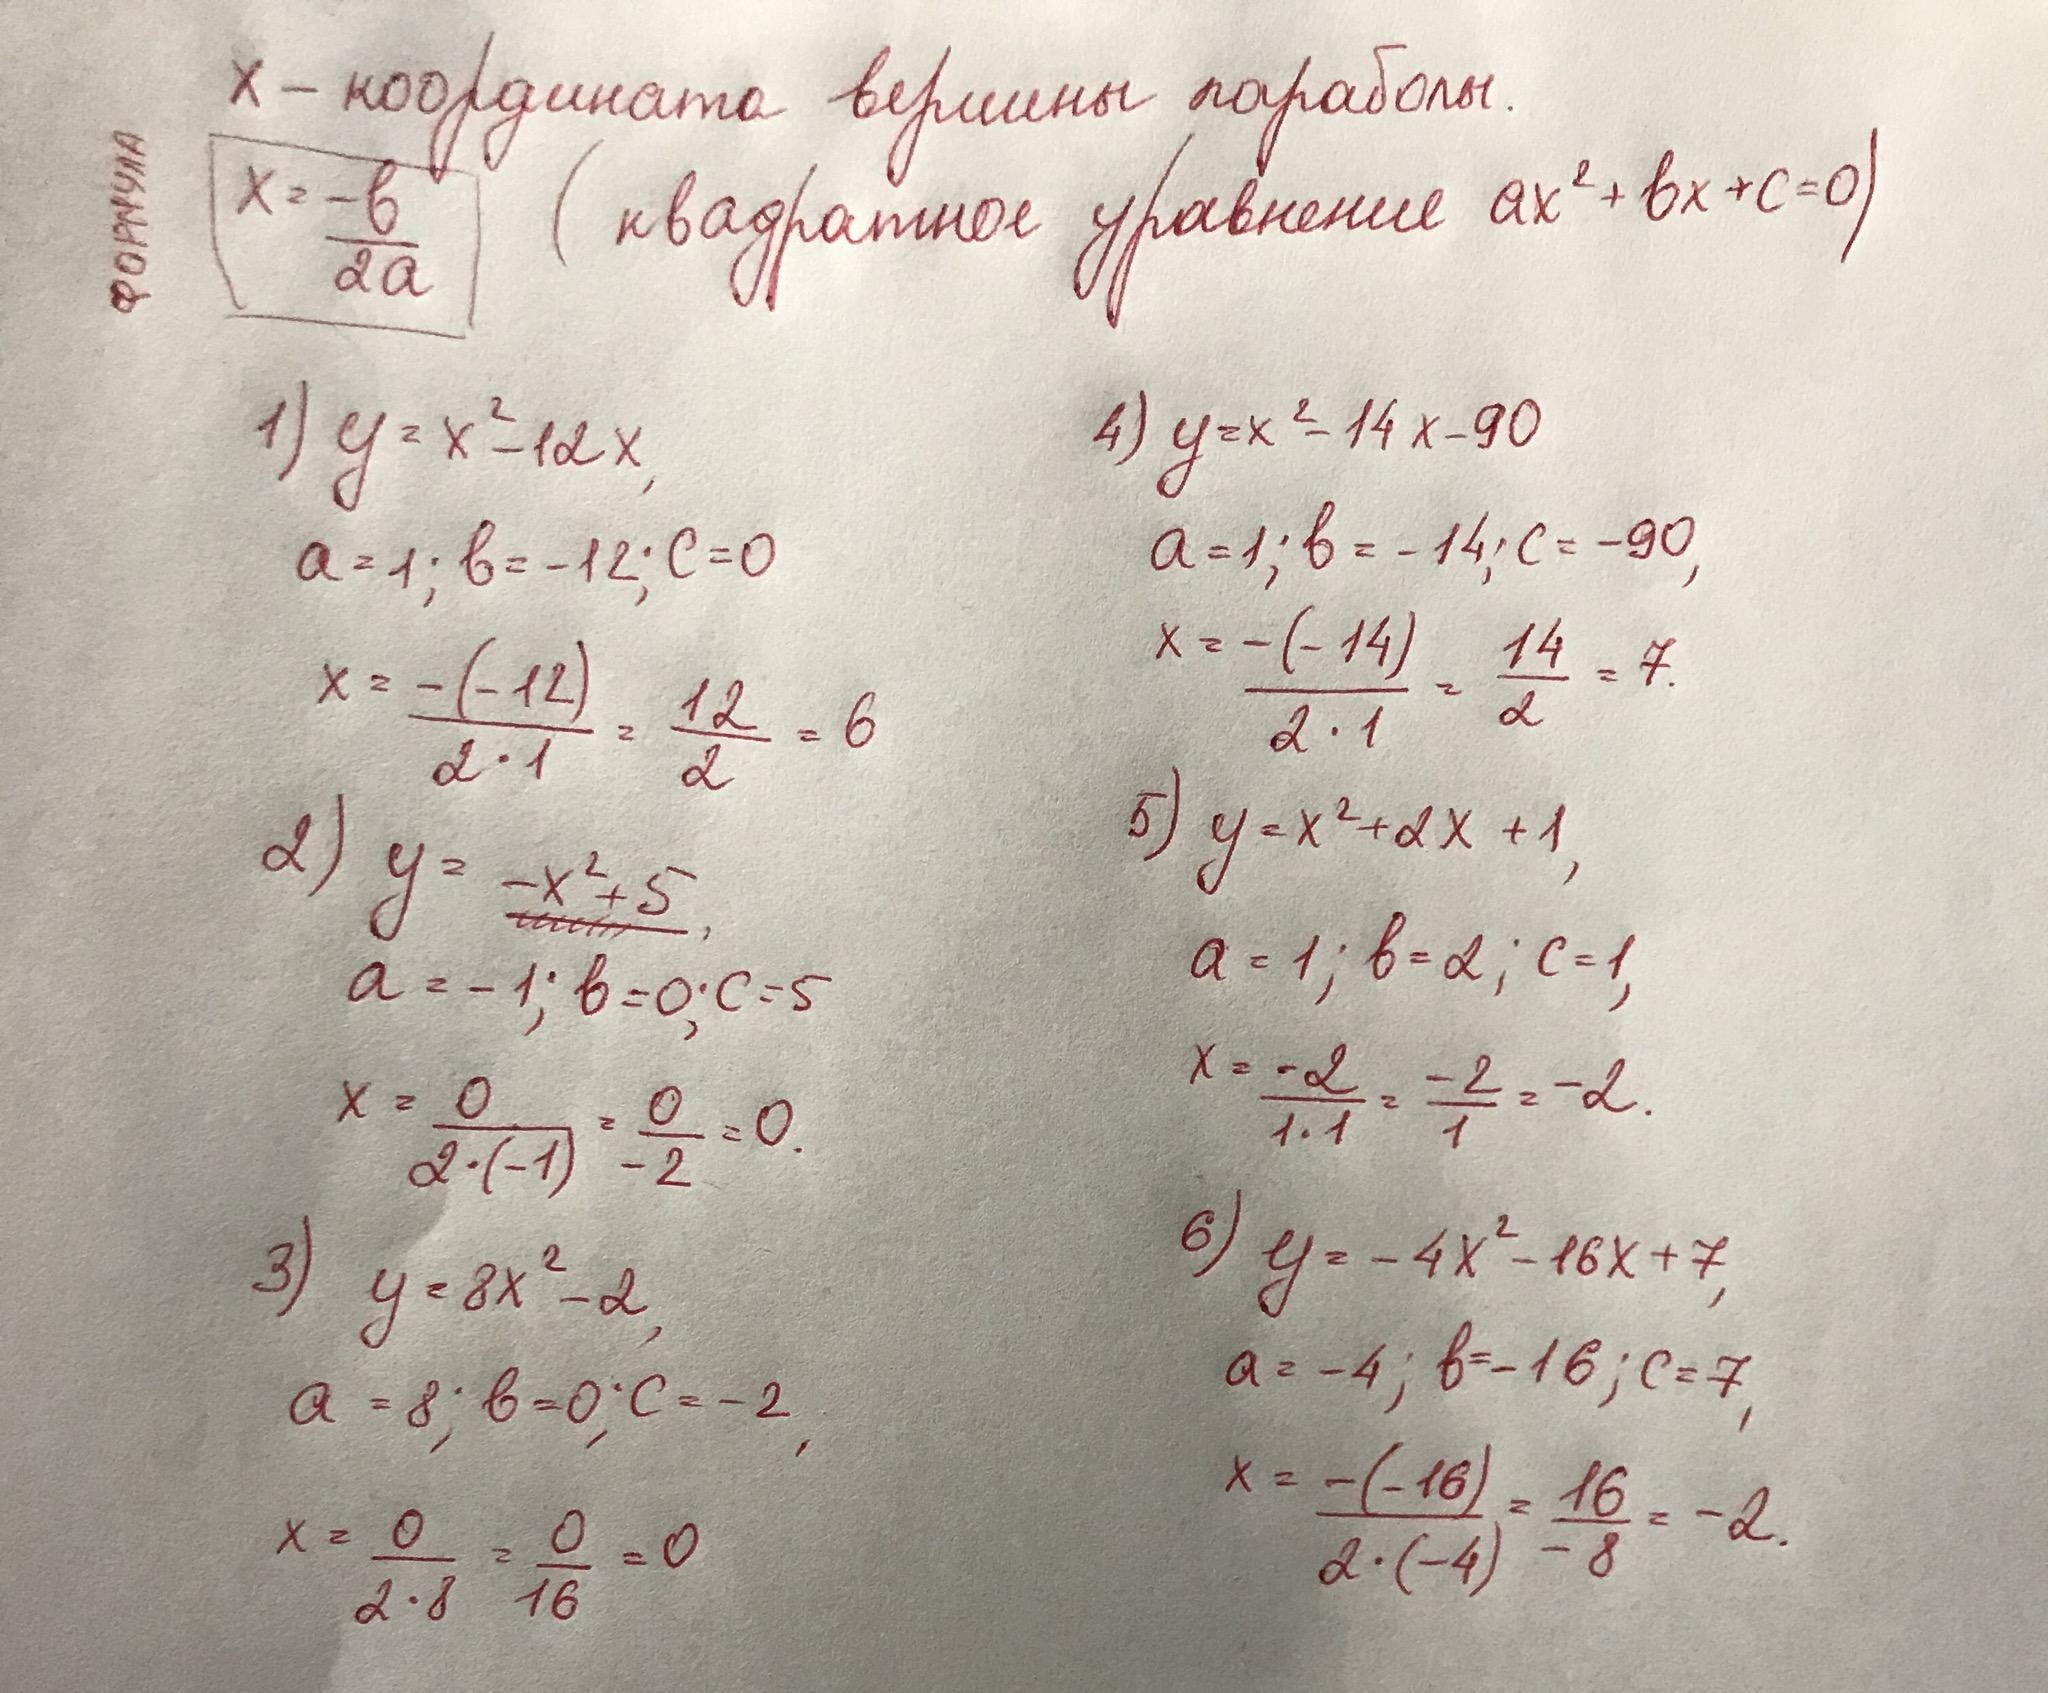 x – координата вершины параболы.
ФОРМУЛА
x = -b/2a (квадратное уравнение ax² + bx + c = 0)
1) y = x² - 12x,
a = 1; b = -12; c = 0
x = -(-12)/2·1 = 12/2 = 6
2) y = -x² + 5,
a = -1; b = 0; c = 5
x = 0/2·(-1) = 0/-2 = 0.
3) y = 8x² - 2,
a = 8; b = 0; c = -2,
x = 0/2·8 = 0/16 = 0
4) y = x² - 14x - 90
a = 1; b = -14; c = -90,
x = -(-14)/2·1 = 14/2 = 7.
5) y = x² + 2x + 1,
a = 1; b = 2; c = 1,
x = -2/1·1 = -2/1 = -2.
6) y = -4x² - 16x + 7,
a = -4; b = -16; c = 7,
x = -(-16)/2·(-4) = 16/-8 = -2.